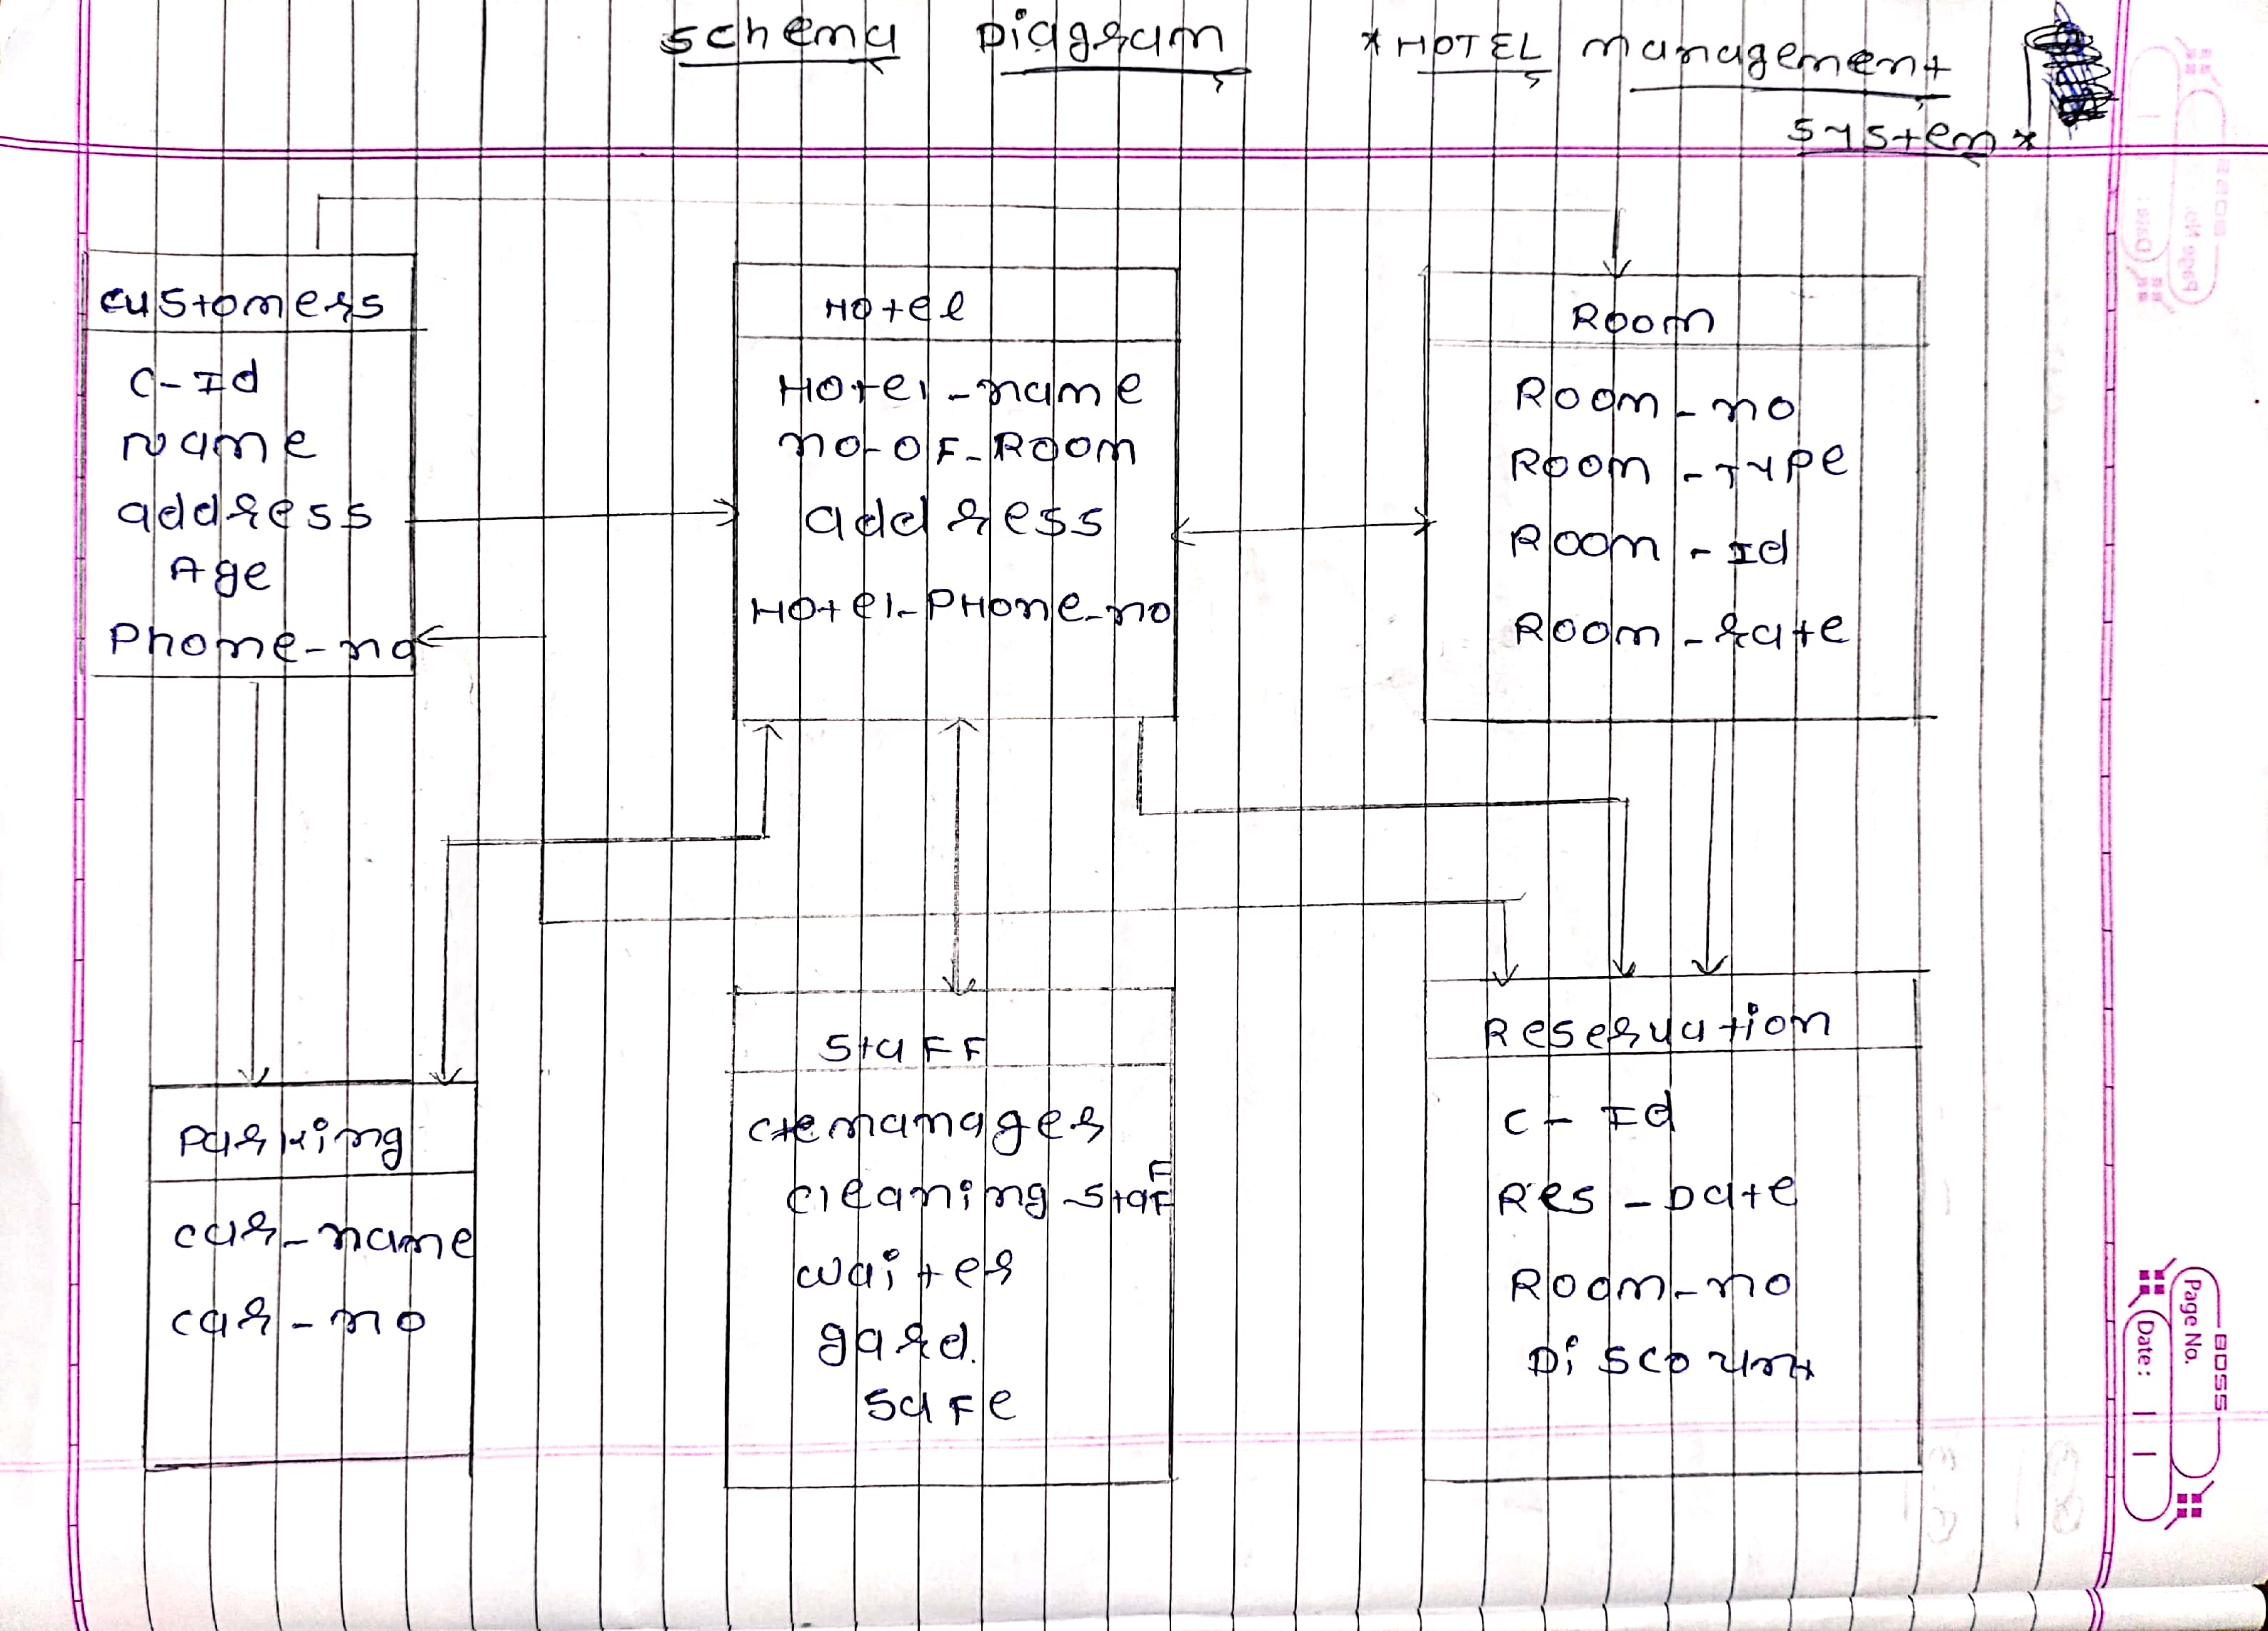 Schema Diagram * HOTEL Management
System *
Customers
C-Id
Name
address
Age
Phone-no
Hotel
Hotel-name
no-OF-Room
address
Hotel-PHone-no
Room
Room-no
Room-Type
Room-Id
Room-rate
Parking
car-name
car-no
StaFF
manager
cleaning-staFF
waiter
gard.
SaFe
Reservation
C-Id
Res-Date
Room-no
Discount
BOSS
Page No.
Date: